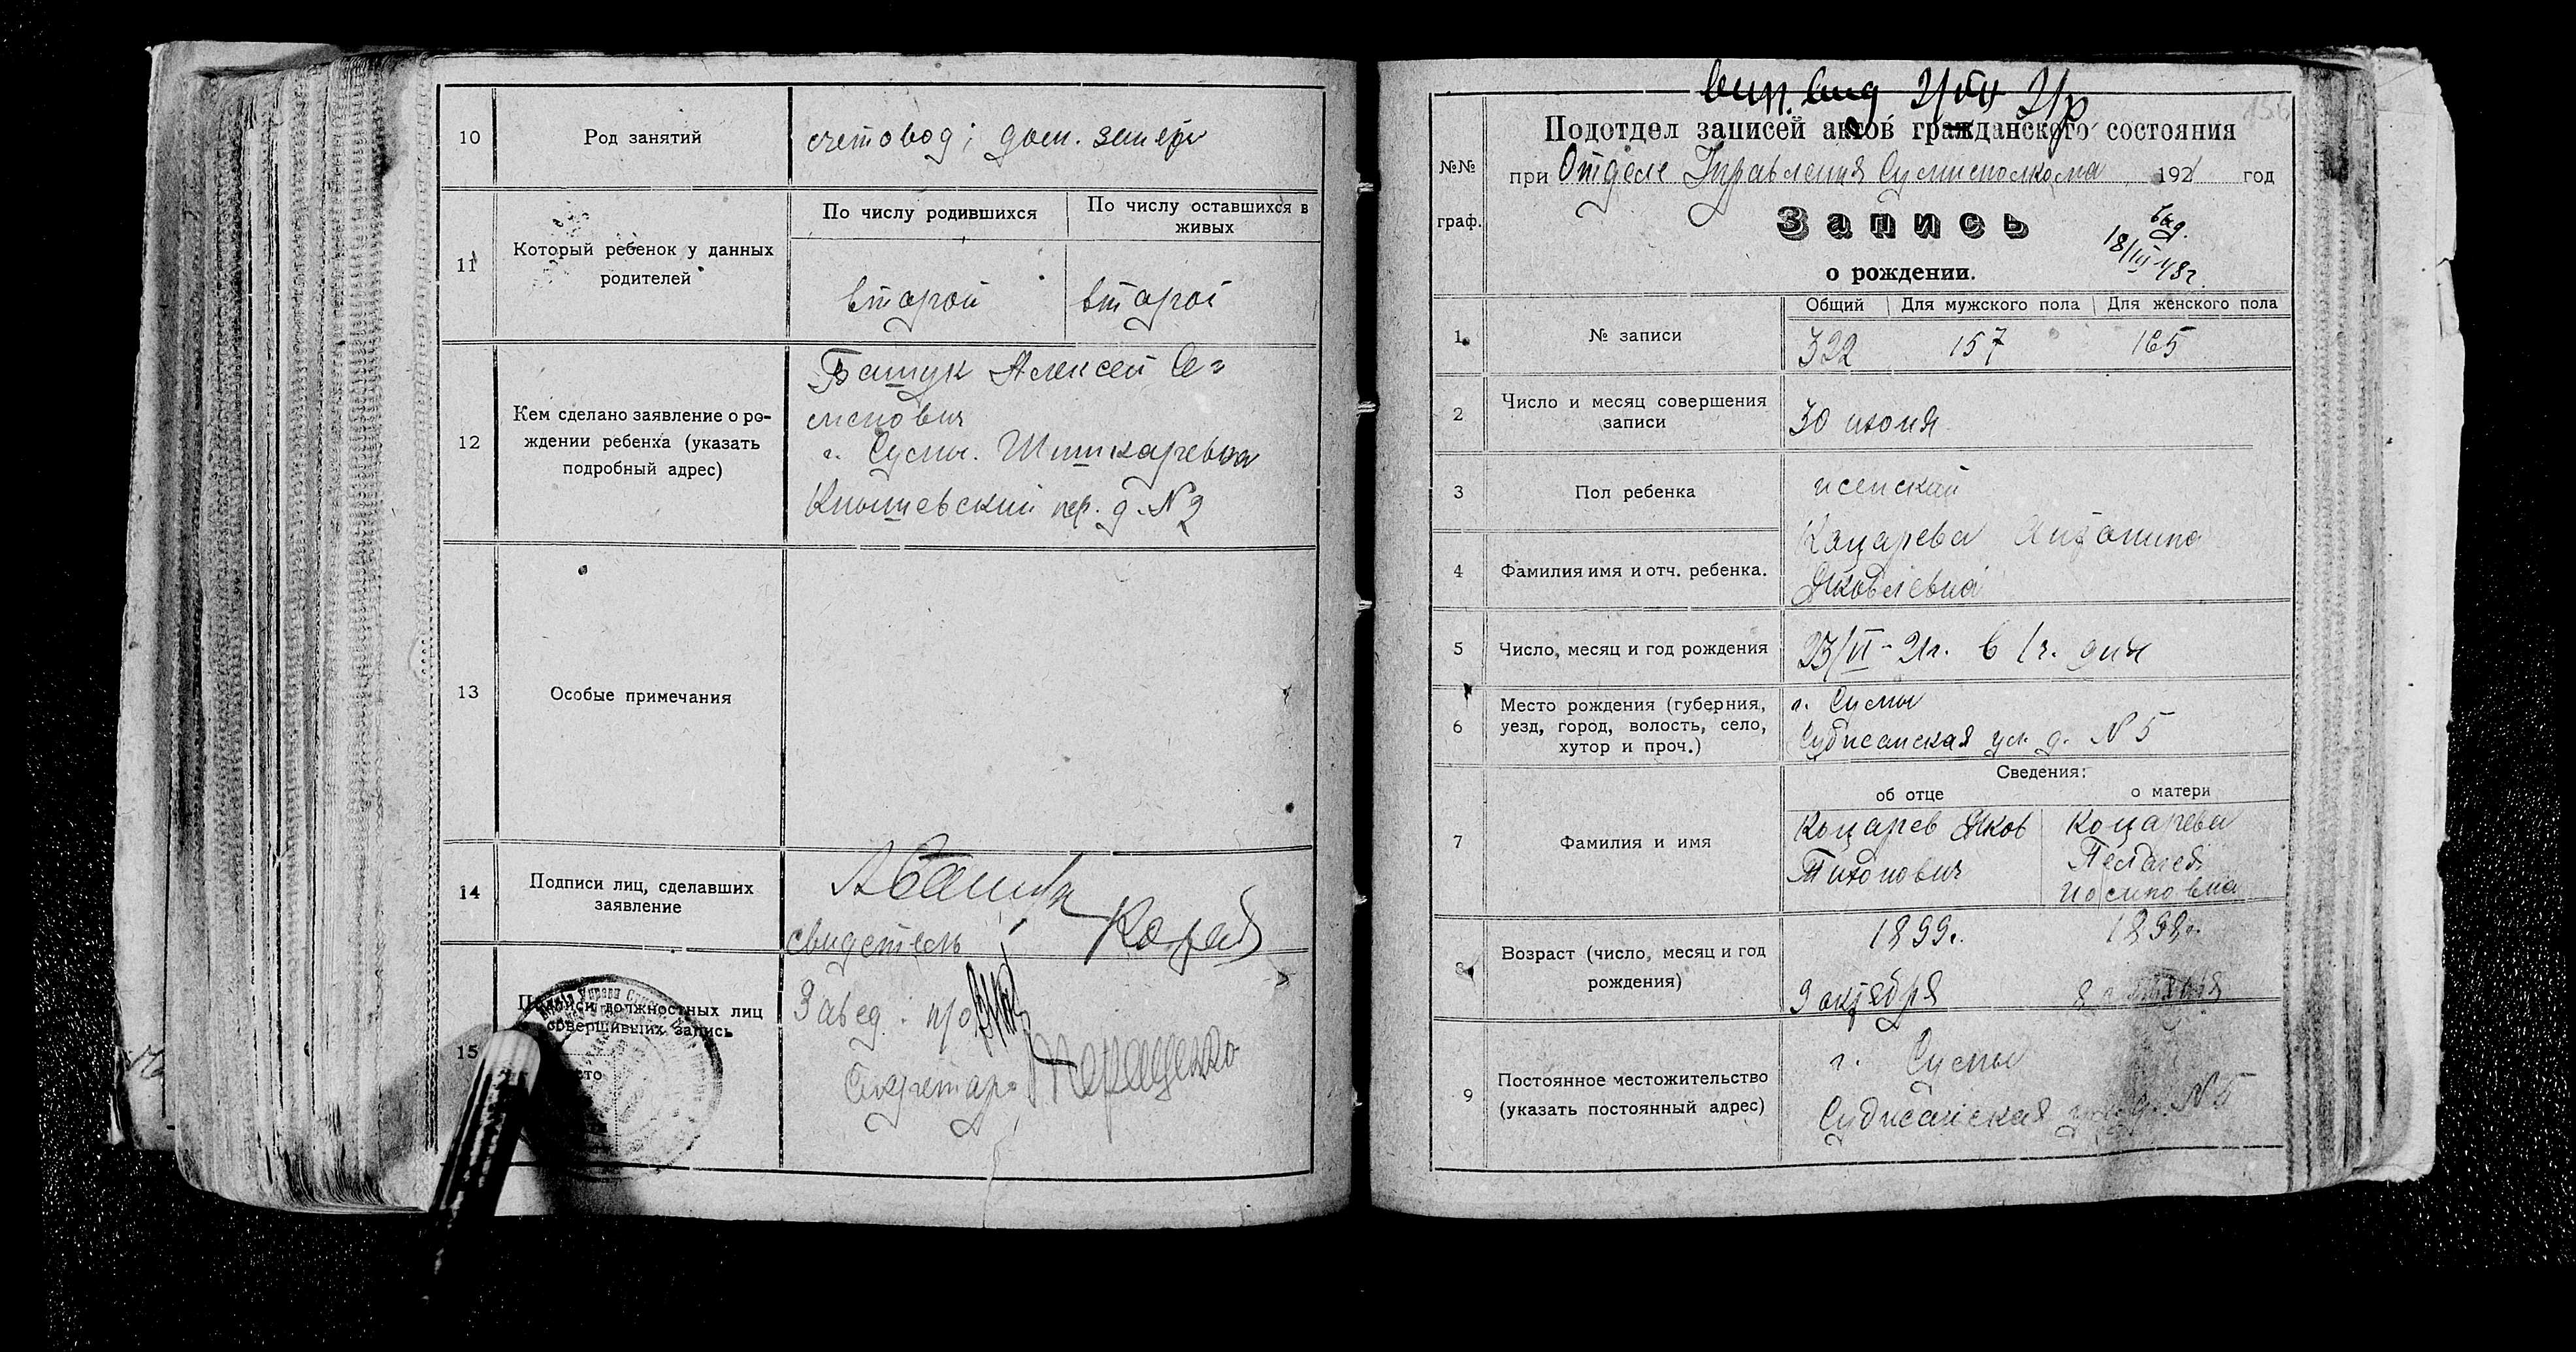 10 Род занятий счетовод; дом.
11 Который ребенок у данных родителей
По числу родившихся По числу оставшихся в живых
второй второй
12 Кем сделано заявление о ро-
ждении ребенка (указать
подробный адрес)
Башук Алексей Се=
менович
г. Сумы.
пер. д. № 2
13 Особые примечания
14 Подписи лиц, сделавших
заявление
свидетель
15 Подписи должностных лиц
совершивших запись
Завед.
Секретарь
Подотдел записей актов гражданского состояния
№№ граф.
при Отделе Управления Сумисполкома 1921 год
Запись
о рождении.
выд.
18/III 48г.
Общий Для мужского пола Для женского пола
1 № записи 322 157 165
2 Число и месяц совершения
записи
30 июня
3 Пол ребенка женский
4 Фамилия имя и отч. ребенка.
Коцарева Антонина
Яковлевна
5 Число, месяц и год рождения 23/VI - 21г. в 1ч. дня
6 Место рождения (губерния,
уезд, город, волость, село,
хутор и проч.)
г. Сумы
Суджанская ул. д. № 5
Сведения:
об отце о матери
7 Фамилия и имя
Коцарев Яков
Тихонович
Коцарева
Пелагея
Иосиповна
8 Возраст (число, месяц и год
рождения)
1899г. 1898г.
9 октября 8
9 Постоянное местожительство
(указать постоянный адрес)
г. Сумы
Суджанская ул. д. № 5